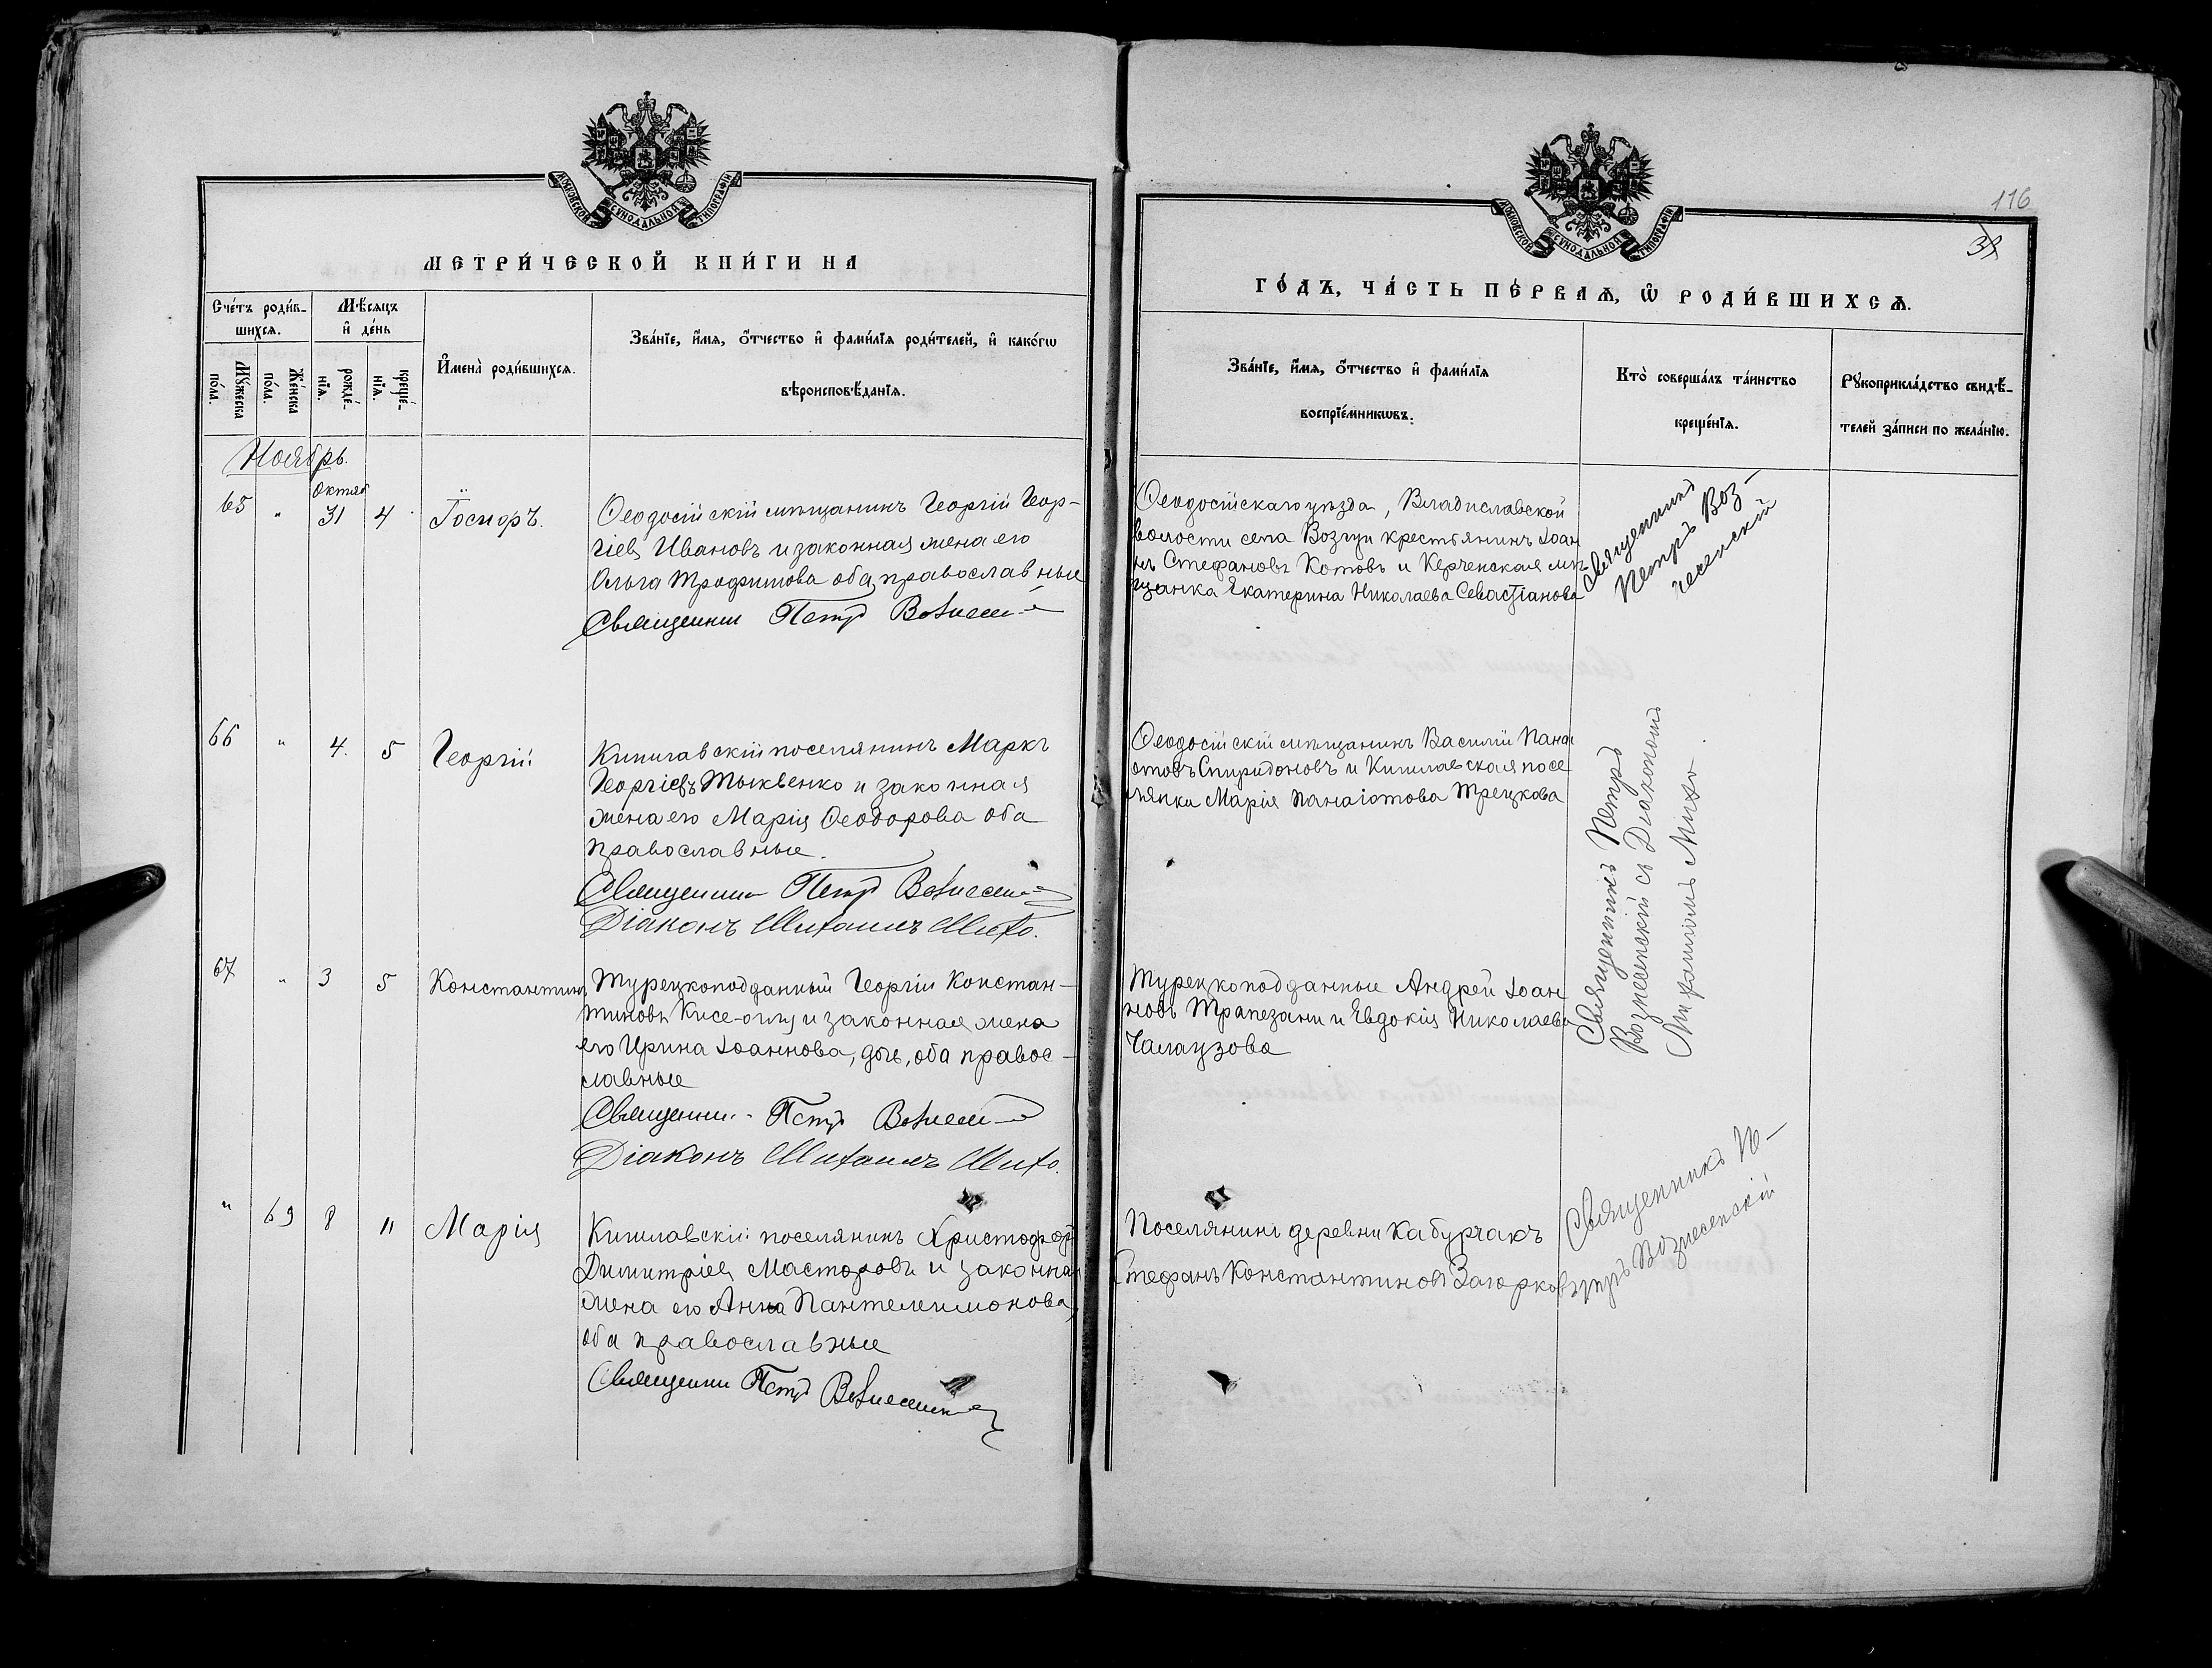 МОСКОВСКОЙ СѴНОДАЛЬНОЙ ТИПОГРАФІИ
МЕТРИ́ЧЕСКОЙ КНИ́ГИ НА
Сче́тъ роди́в-
шихсѧ.
Мѣ́сѧцъ
и҆ де́нь
Мꙋ́жеска
по́ла.
Же́нска
по́ла.
рожде́-
нїѧ.
креще́-
нїѧ.
И҆мена̀ роди́вшихсѧ.
Зва́нїе, и҆́мѧ, ѻ҆́тчество и҆ фами́лїѧ роди́телей, и҆ како́гѡ
вѣроисповѣ́данїѧ.
Ноябрь.
65 " Октяб 31 4
Ѳеодосійскій мѣщанинъ Георгій Геор-
гіевъ Ивановъ и законная жена его
Ольга Трофимова оба православные
Священникъ Петръ Вознесенскій
66 " 4. 5 Георгій
Кишлавскій поселянинъ Маркъ
Георгіевъ Тыквенко и законная
жена его Марія Ѳеодорова оба
православные.
Священникъ Петръ Вознесенскій
Діаконъ Михаилъ Михо.
67 " 3 5 Константинъ
Турецкоподданный Георгій Констан-
тиновъ Кисе-оглу и законная жена
его Ирина Іоаннова, оба правос-
лавные
Священникъ Петръ Вознесенскій
Діаконъ Михаилъ Михо.
" 69 8 11 Марія
Кишлавскій поселянинъ Христофоръ
Димитріевъ Масторовъ и законная
жена его Анна Пантелеимонова,
оба православные
Священникъ Петръ Вознесенскій
116
МОСКОВСКОЙ СѴНОДАЛЬНОЙ ТИПОГРАФІИ
ГО́ДЪ, ЧА́СТЬ ПЕ́РВАѦ, Ѽ РОДИ́ВШИХСѦ.
Зва́нїе, и҆́мѧ, ѻ҆́тчество и҆ фами́лїѧ
воспрїе́мникѡвъ.
Кто̀ соверша́лъ та́инство
креще́нїѧ.
Рꙋкоприкла́дство свидѣ́-
телей за́писи по жела́нїю.
Ѳеодосійскаго уѣзда, Владиславской
волости села Возгун крестьянинъ Іоан
нъ Стефановъ Котовъ и Керченская мѣ
щанка Екатерина Николаева Севастіанова
Священникъ
Петръ Воз-
несенскій
Ѳеодосійскій мѣщанинъ Василій Пана
іотовъ Спиридоновъ и Кишлавская посе
лянка Марія Панаіотова Трецкова
Священникъ Петръ
Вознесенскій съ Діакономъ
Михаиломъ Михо
Турецкоподданные Андрей Іоан
новъ Трапезани и Евдокія Николаева
Чалаузова
Поселянинъ деревни Кабурчакъ
Стефанъ Константиновъ Загорковъ
Священникъ Пе-
тръ Вознесенскій